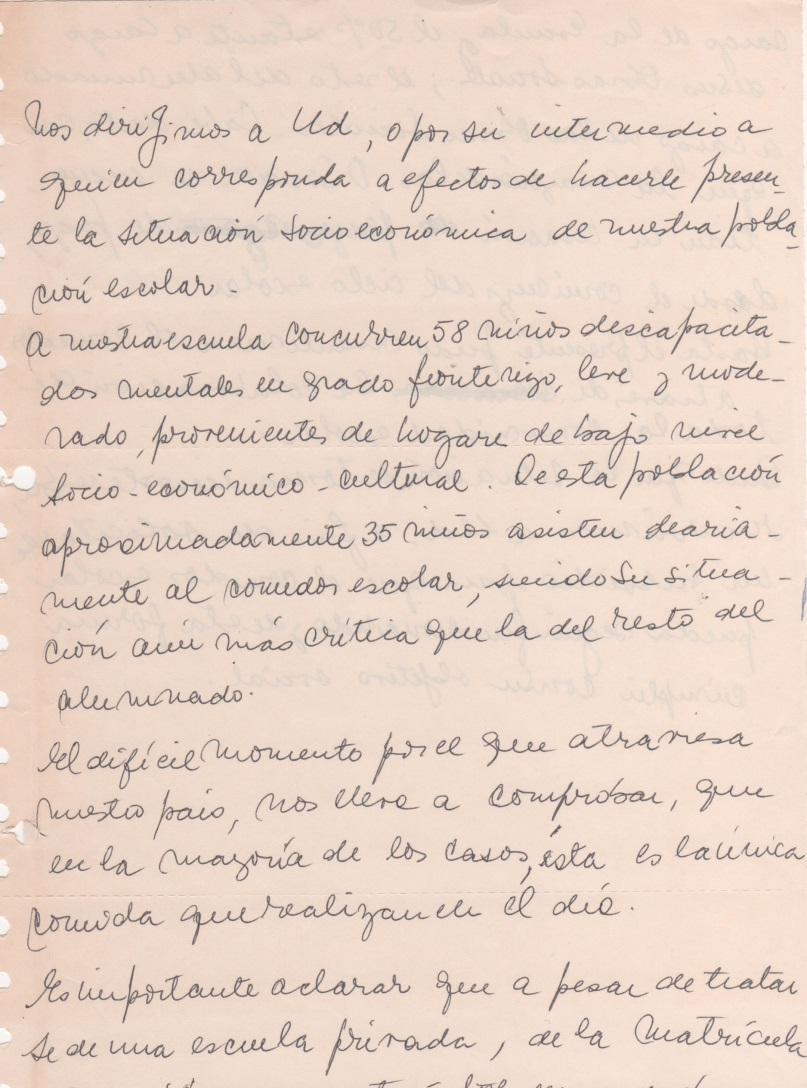 Nos dirigimos a Ud, o por su intermedio a
quien corresponda a efectos de hacerle presen-
te la situación socioeconómica de nuestra pobla-
ción escolar.
A nuestra escuela concurren 58 niños descapacita-
dos mentales en grado fronterizo, leve y mode-
rado, provenientes de hogares de bajo nivel
socio-económico-cultural. De esta población
aproximadamente 35 niños asisten diaria-
mente al comedor escolar, siendo su situa-
ción aún más crítica que la del resto del
alumnado.
El difícil momento por el que atraviesa
nuestro país, nos lleva a comprobar, que
en la mayoría de los casos, ésta es la única
comida que realizan en el día.
Es importante aclarar que a pesar de tratar
se de una escuela privada, de la matrícula